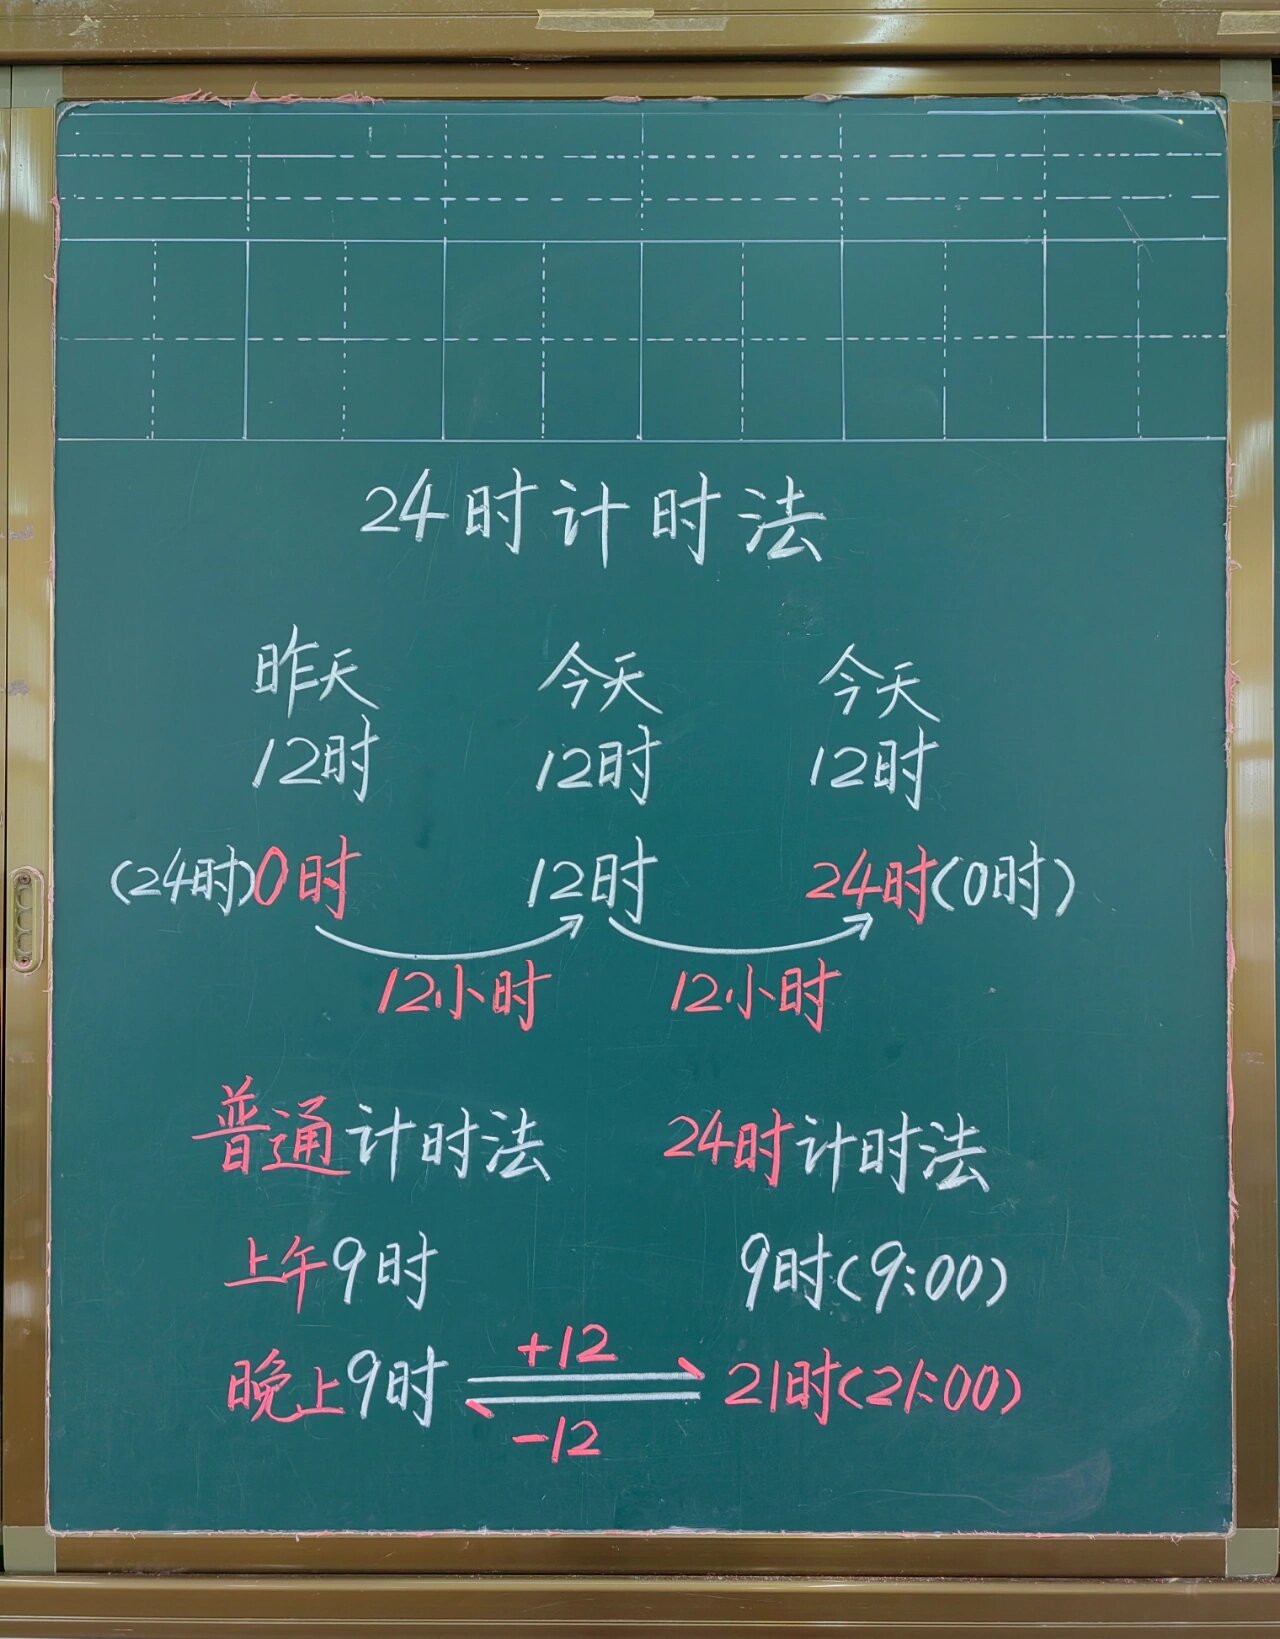 24时计时法
昨天 今天 今天
12时 12时 12时
(24时)0时 12时 24时(0时)
12小时 12小时
普通计时法 24时计时法
上午9时 9时(9:00)
+12
晚上9时 21时(21:00)
-12